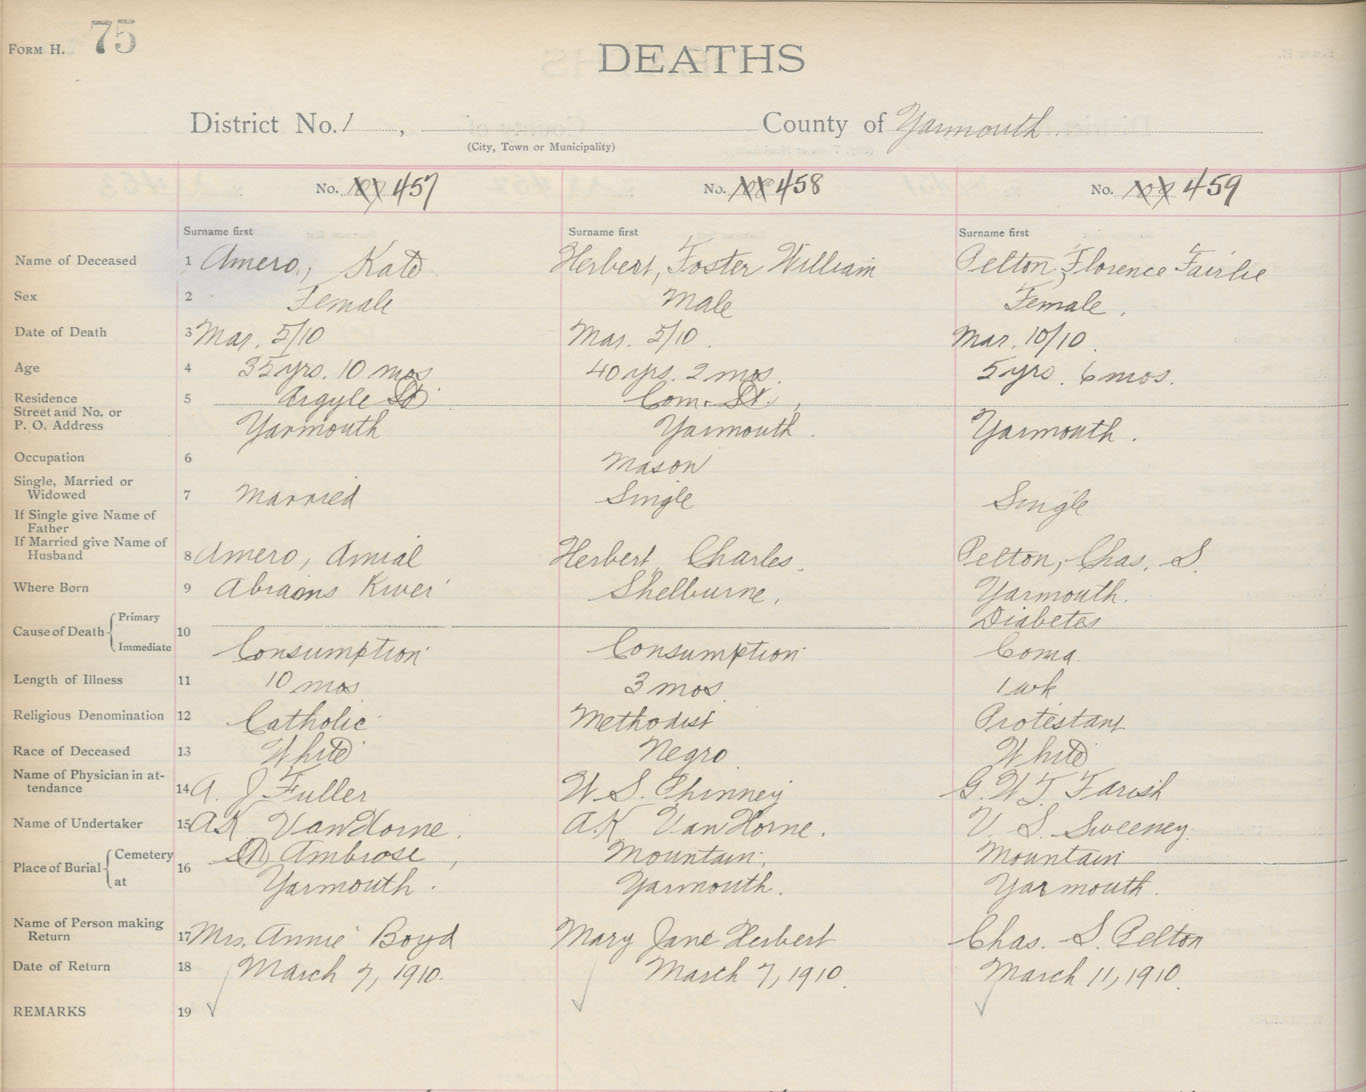 FORM H. 75
DEATHS
District No. 1 , County of Yarmouth
(City, Town or Municipality)
No. 457 No. 458 No. 459
Surname first Surname first Surname first
Name of Deceased 1 Amero, Kate Herbert, Foster William Pelton, Florence Fairlie
Sex 2 Female Male Female.
Date of Death 3 Mar. 5/10 Mar. 5/10. Mar. 10/10.
Age 4 35 yrs. 10 mos 40 yrs. 2 mos. 5 yrs. 6 mos.
Residence 5 Argyle St Com. St.,
Street and No. or
P. O. Address Yarmouth Yarmouth. Yarmouth.
Occupation 6 Mason
Single, Married or
Widowed 7 Married Single Single
If Single give Name of
Father
If Married give Name of
Husband 8 Amero, Amial Herbert, Charles. Pelton, Chas. S.
Where Born 9 Abrams River Shelburne. Yarmouth.
Cause of Death Primary 10 Diabetes
Immediate Consumption Consumption Coma.
Length of Illness 11 10 mos 3 mos 1 wk
Religious Denomination 12 Catholic Methodist Protestant
Race of Deceased 13 White Negro White
Name of Physician in at-
tendance 14 A. J Fuller W. S. Phinney G. W. T. Farish
Name of Undertaker 15 AK VanHorne. AK VanHorne. V. S. Sweeney.
Place of Burial Cemetery 16 St Ambrose, Mountain. Mountain
at Yarmouth. Yarmouth. Yarmouth.
Name of Person making
Return 17 Mrs. Annie Boyd Mary Jane Herbert Chas. S. Pelton
Date of Return 18 March 7, 1910. March 7, 1910. March 11, 1910.
REMARKS 19